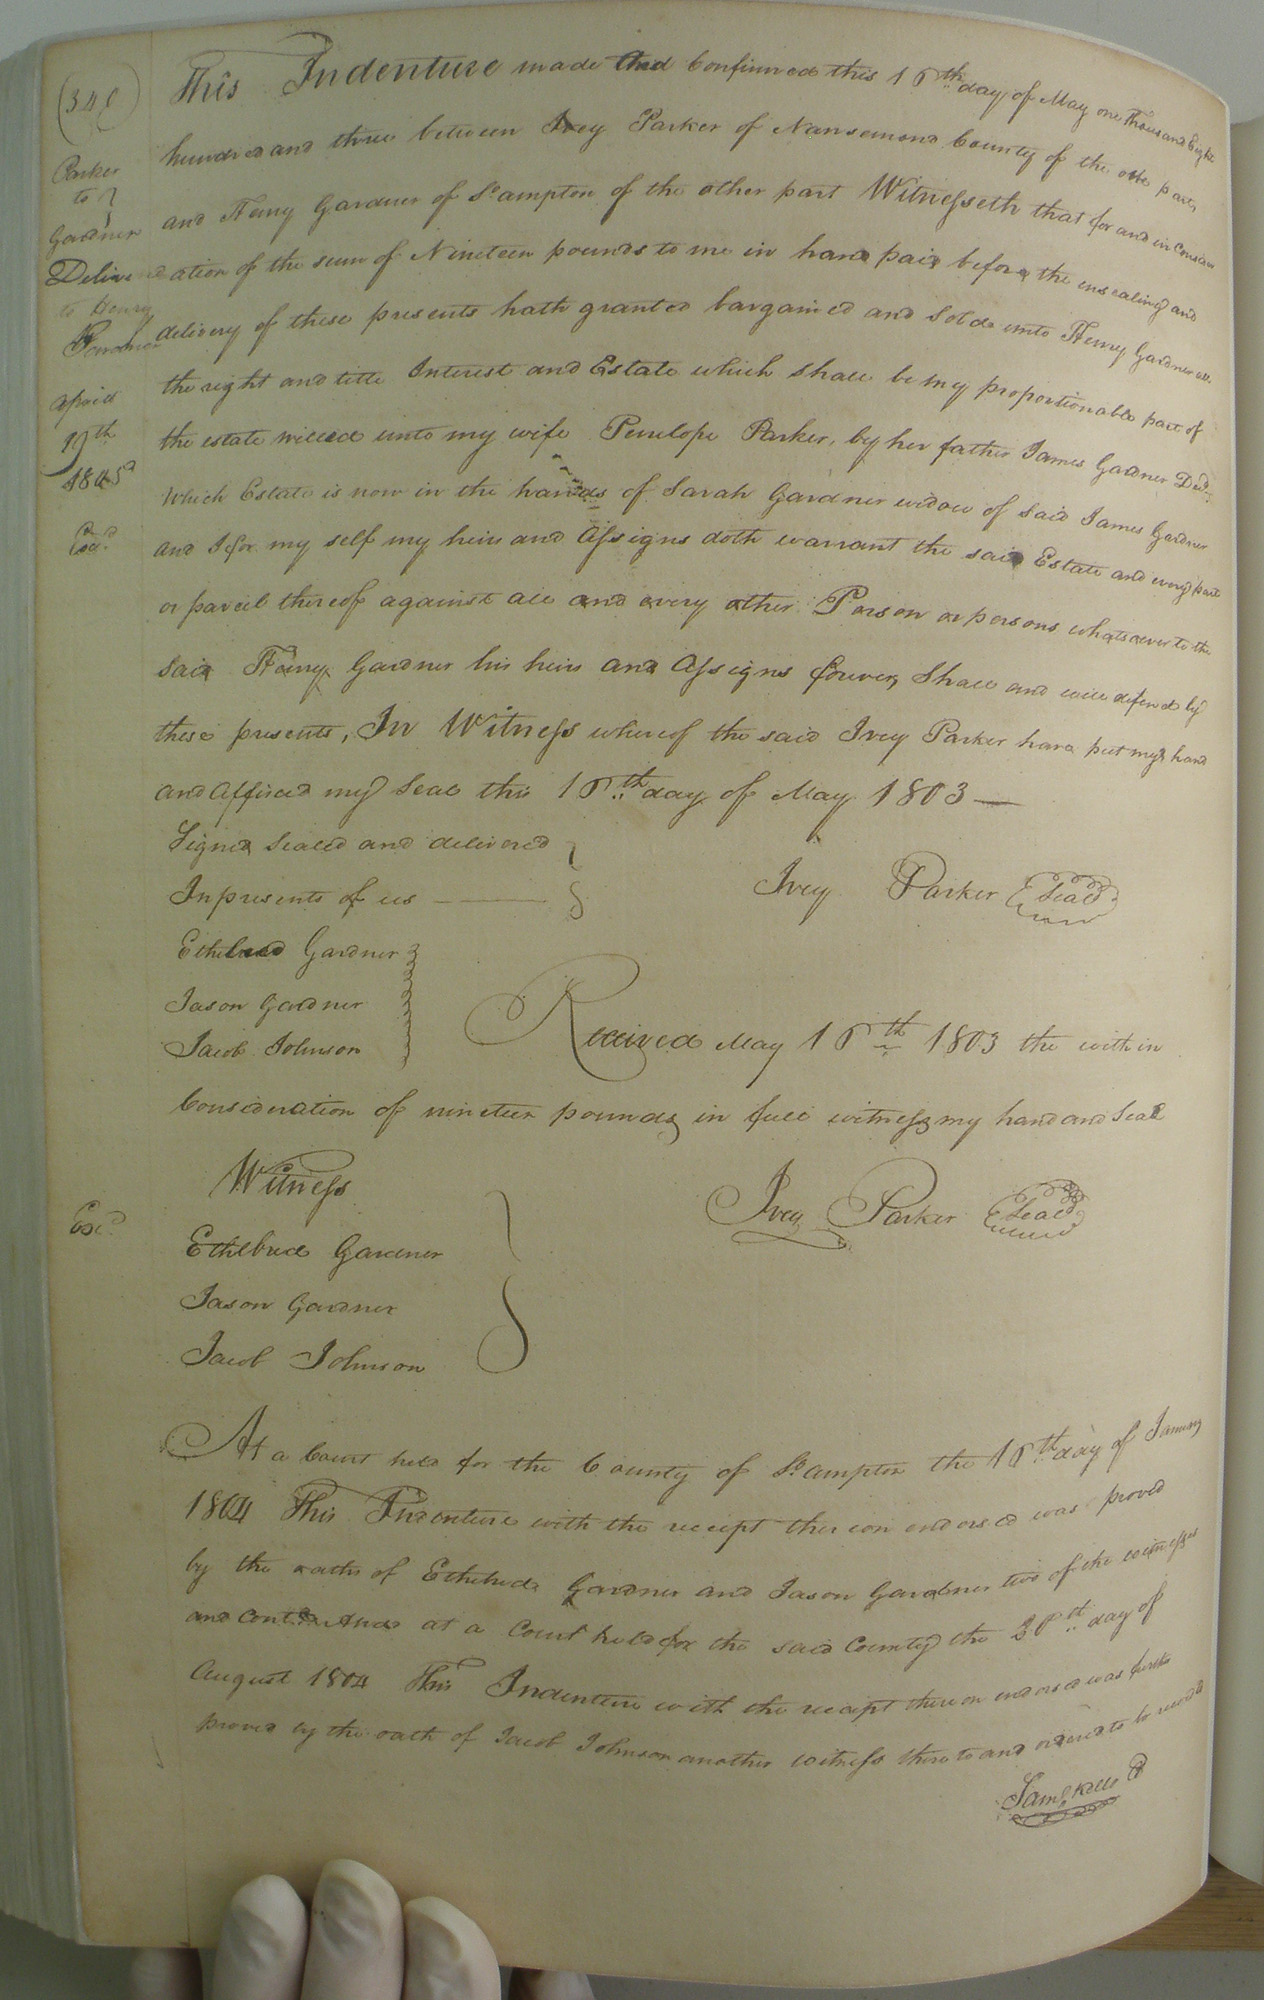 (340)
Parker
to
Gardner
Delive
to Henry
Gardner
april
19th
1805
Exd.
This Indenture made And Confirmed this 16th day of May one Thousand Eight
hundred and three between Ivey Parker of Nansemond County of the one part,
and Henry Gardner of So.ampton of the other part Witnesseth that for and in Consider
ation of the sum of Nineteen pounds to me in hand paid before the ensealing and
delivery of these presents hath granted bargained and Sold unto Henry Gardner all
the right and title Interest and Estate which Shall be my proportionable part of
the estate willed unto my wife Penelope Parker, by her father James Gardner Decd.
Which Estate is now in the hands of Sarah Gardner widow of Said James Gardner
and I for my self my heirs and Assigns doth warrant the said Estate and every part
or parcel thereof against all and every other Person or persons whatsoever to the
Said Henry Gardner his heirs and Assigns forever, Shall and will defend by
these presents, In Witness whereof the said Ivey Parker have put my hand
and affixed my Seal this 16th day of May 1803 —
Signed Sealed and delivered
In presents of us —
Ivey Parker Seal
Ethelred Gardner
Jason Gardner
Jacob Johnson
Received May 16th 1803 the within
Consideration of nineteen pounds in full witness my hand and Seal
Witness
Ivey Parker Seal
Exd.
Ethelred Gardner
Jason Gardner
Jacob Johnson
At a Court held for the County of So.ampton the 16th day of January
1804 This Indenture with the receipt thereon endorsed was proved
by the oaths of Etheldred Gardner and Jason Gardner two of the witnesses
and contd. And at a Court held for the said County the 20th day of
August 1804 This Indenture with the receipt thereon endorsed was further
proved by the oath of Jacob Johnson another witness thereto and ordered to be recorded
Saml Kello